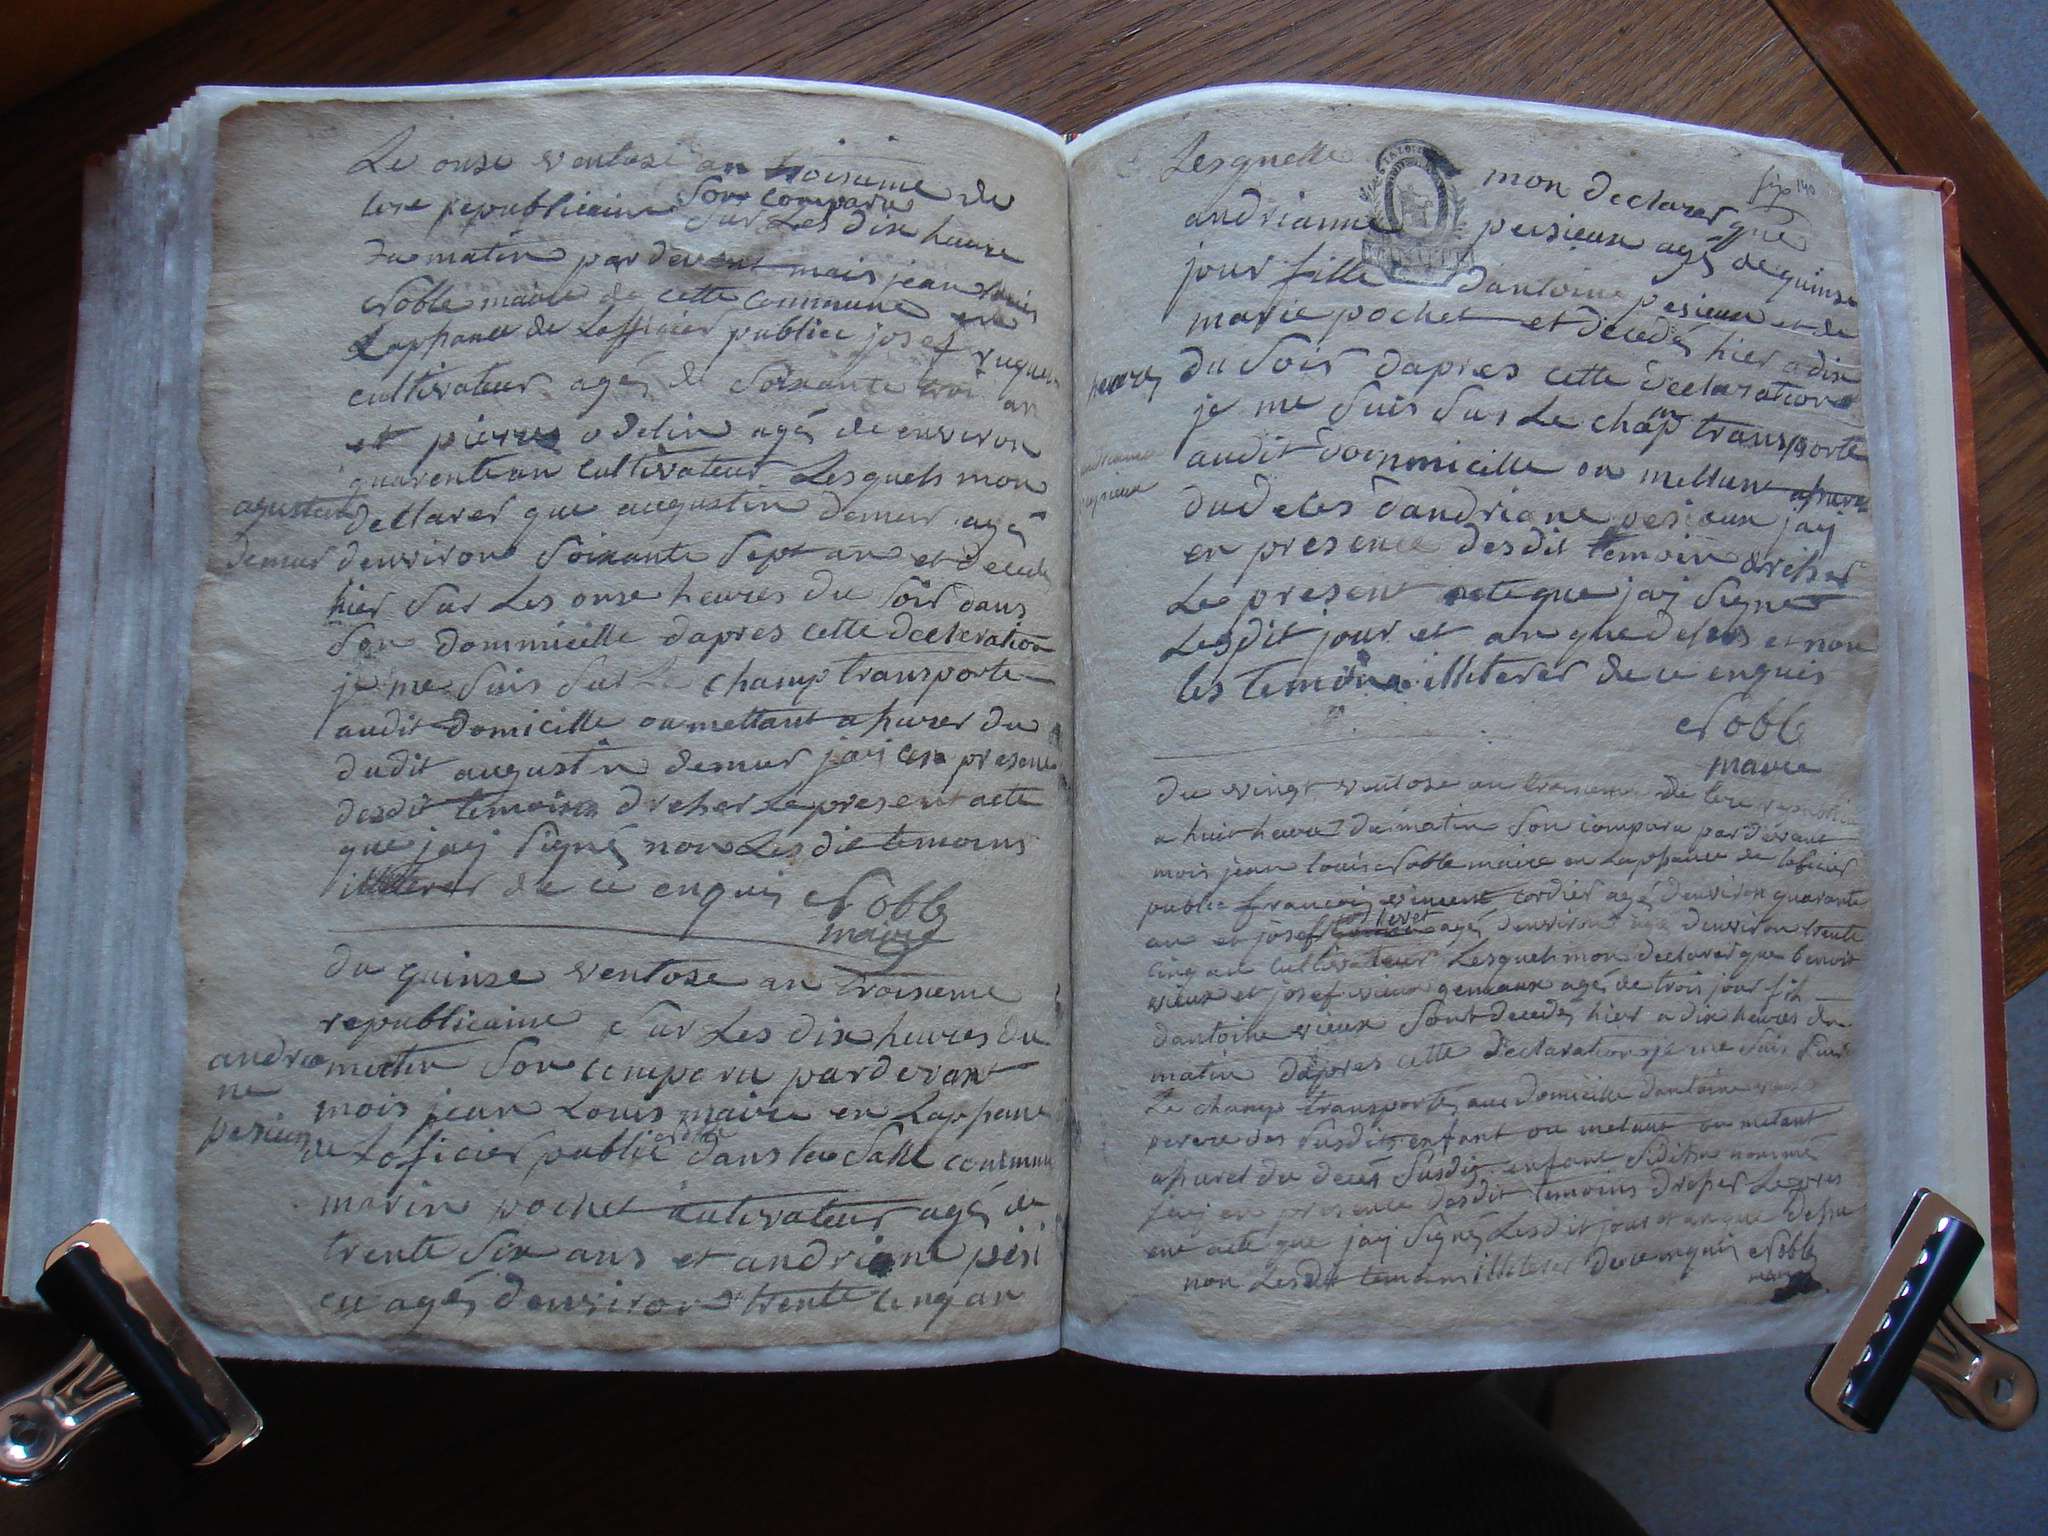 Le onse ventose an troisieme de
lere republicaine son comparu
sur Les dix heure
du matin pardevent mais jean louis
Noble maire de cette commune en
Lapsance de Lofficier publice josef
cultivateur agés de soixante troi an
et pierre odelin agés de environ
quarente an cultivateur Lesquels mon
agustin
demur
declarer que augustin demur agé
denviron soixante sept an et décédé
hier sur Les onse heures du soir dans
son dommicille dapres cette decleration
je me suis sur Le champ transporte
audit domicille ou mettant a surer du
dudit augustin demur jaij en presence
desdit temoins dreser Le present acte
que jaij signés non Lesdit temoins
illeterer de ce enquis Noble
maire
du quinse ventose an troisieme
republicaine sur Les dix heures du
andria
ne
pesieux
matin son comparu pardevant
mois jean Louis maire en Lapsance
noble
de Loficier public dans la salle commune
marin pochet cultivateur agés de
trente six ans et andriane pesi
eu agés denviron trente cinq an
140
Lesquelle mon declarer que
andrianne pesieux agés de quinse
jour fille dantoine pesieux et de
marie pochet et decedés hier a dix
heures
du soir dapres cette declaration
je me suis sur Le champ transporte
audit dommicille ou mettant asurer
andrianne
pesieux
du deces dandriane pesieux jaij
en presence desdit temoin dreser
Le present acte que jaij signés
Lesdit jour et an que desus et non
les temoins illeterer de ce enquis
Noble
maire
du vingt ventose an troisieme de lere republicaine
a huit heure du matin son comparu pardevant
mois jean louis Noble maire en Lapsance de loficier
public francois vincent cordier agé denviron quarante
an et josef agé denviron agé denviron trente
cinq an cultivateur Lesquels mon declarer que benoit
vieux et josef vieux gemeaux agés de trois jour fils
dantoine vieux sont decedés hier a dix heures du
matin dapres cette declaration je me suis sur
Le champ transportés aux domicille dantoine vieux
perere des susdits enfant ou metant ou metant
asurer du decés susdit enfant sidesu nommé
jaij en presence desdit temoins dreser Le pres
ent acte que jaij signés Lesdit jour et an que desu
non Lesdit temoins illeterer de ce enquis Noble
maire